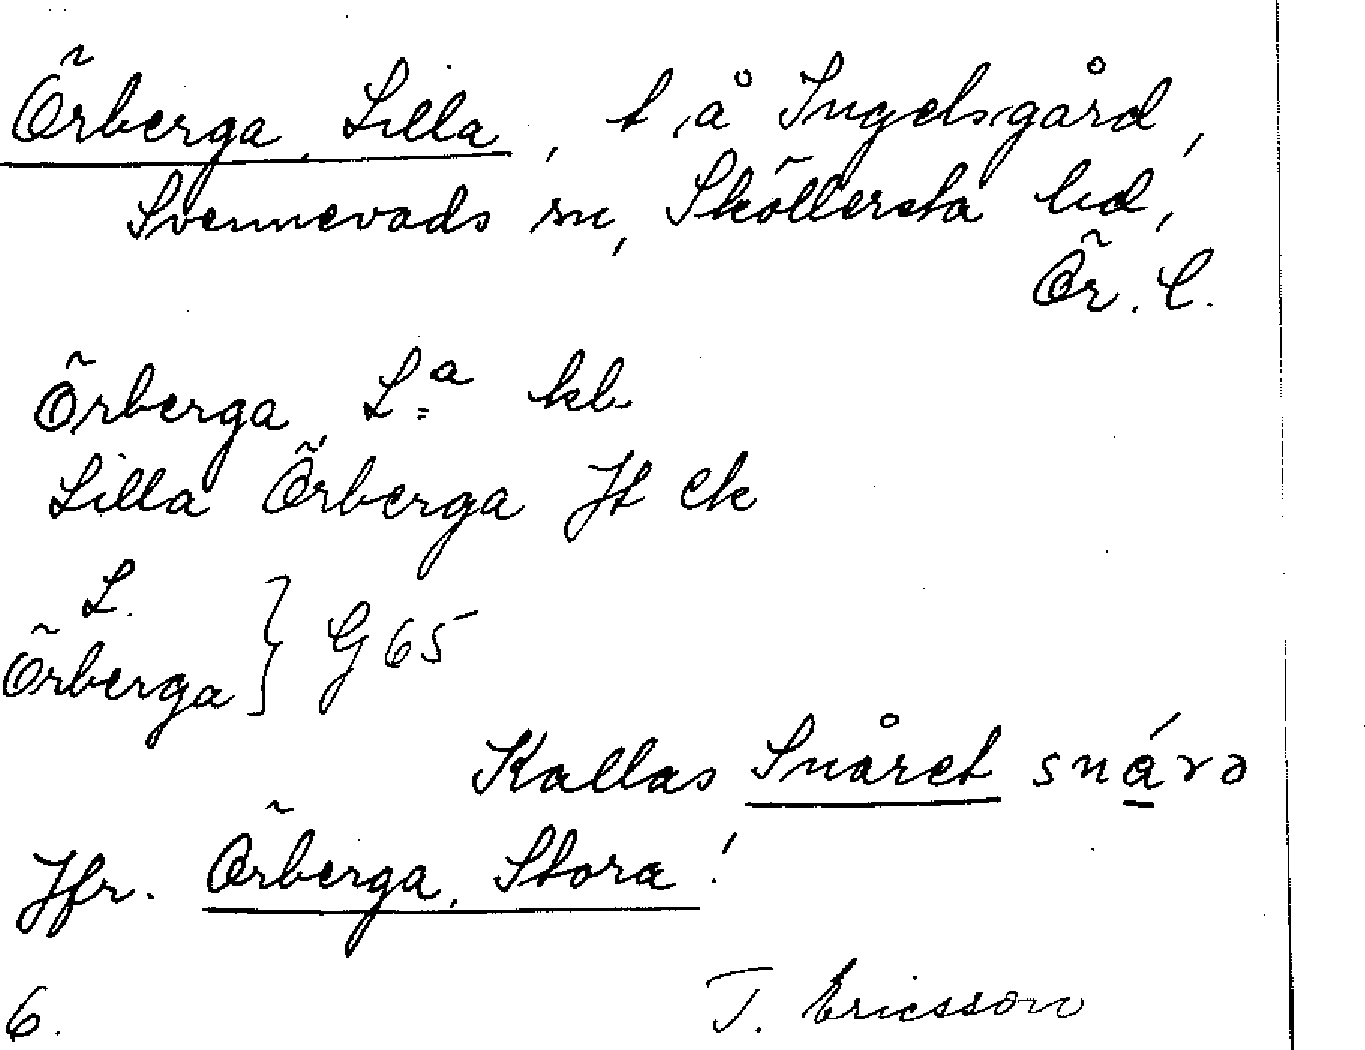 Örberga, Lilla, t. å Ingelsgård,
Svennevads sn, Sköllersta hd,
Ör. l.
Örberga, L:a kb
Lilla Örberga Jt Ek
L.
Örberga } G 65
Kallas Snåret snárə
Jfr. Örberga, Stora!
6. T. Ericsson